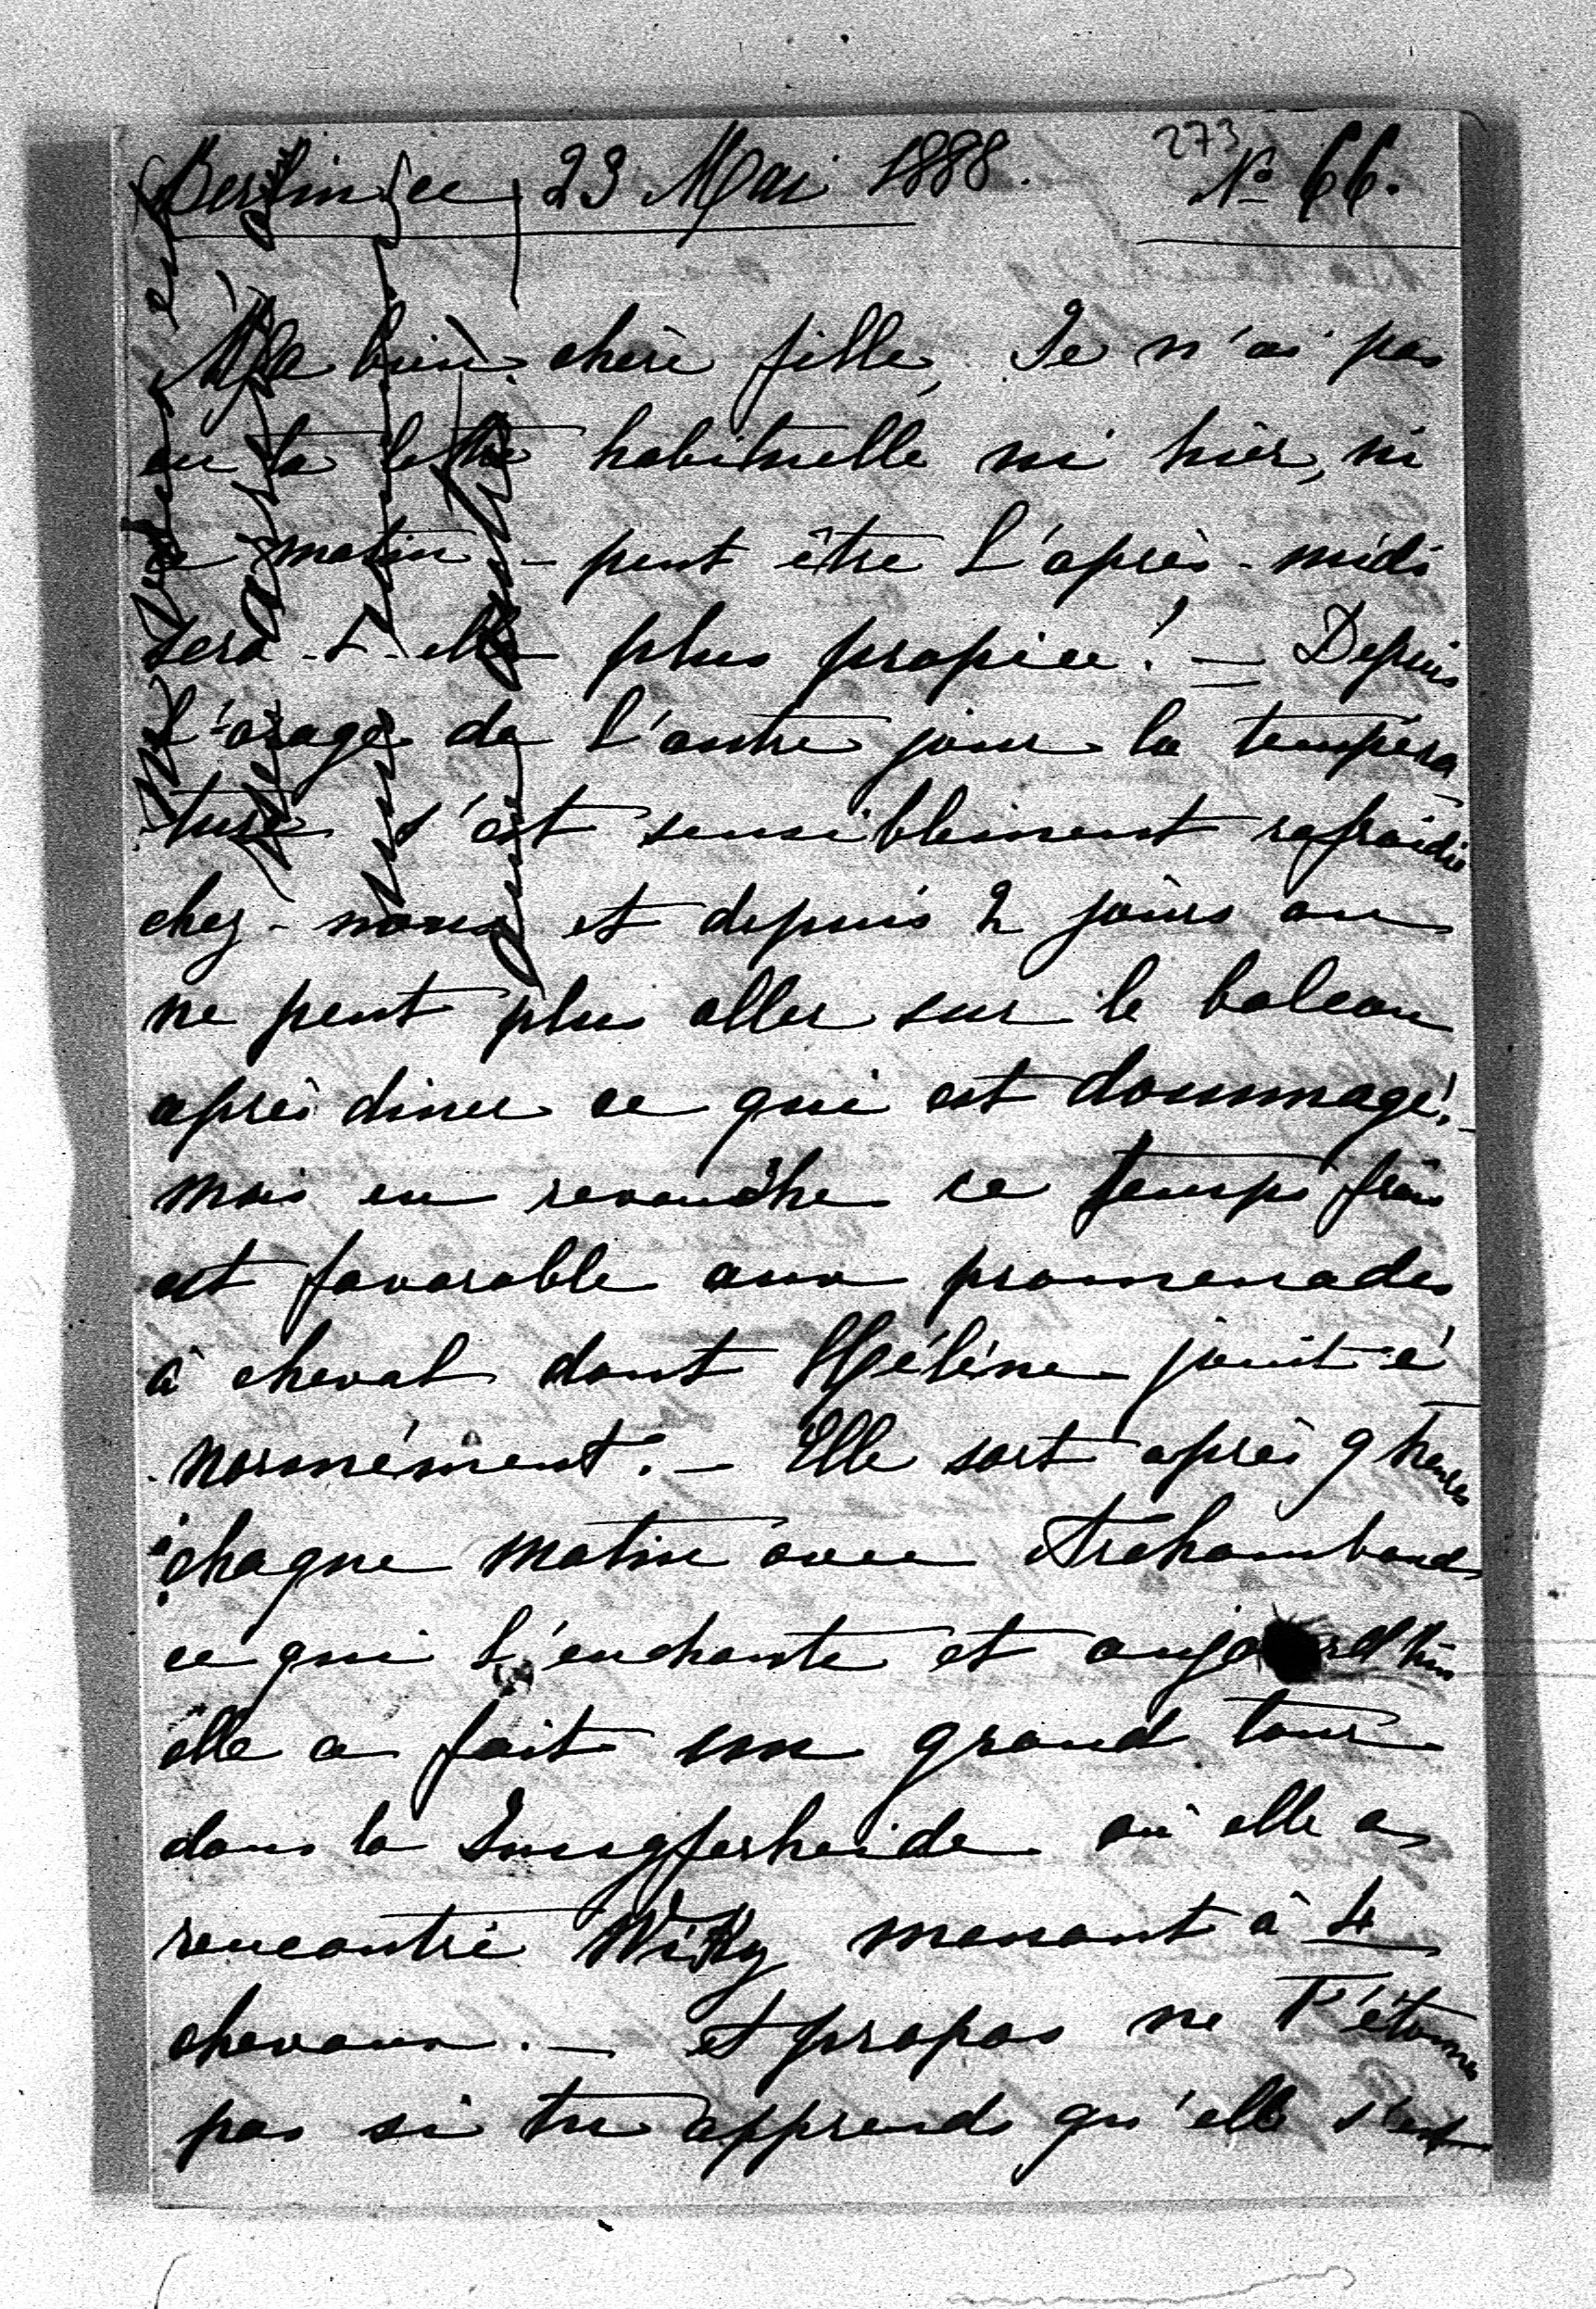 273
Berlin ce 23 Mai 1888. No 66.
Ma bien chère fille, Je n'ai pas
eu ta lettre habituelle ni hier, ni
ce matin – peut être l'après-midi
sera-t-elle plus propice! – Depuis
l'orage de l'autre jour la tempéra-
ture s'est sensiblement rafraidie
chez-nous et depuis 2 jours on
ne peut plus aller sur le balcon
après diner ce qui est dommage! –
mais en revanche ce temps frais
est favorable aux promenades
à cheval dont Hélène jouit é-
normément. – Elle sort après 9 heures
chaque matin avec Archambaud
ce qui l'enchante et aujourd'hui
elle a fait un grand tour
dans la Jungfernheide où elle a
rencontré Wily menant à 4
chevaux. – Et propos ne t'étonne
pas si tu apprends qu'elle s'est